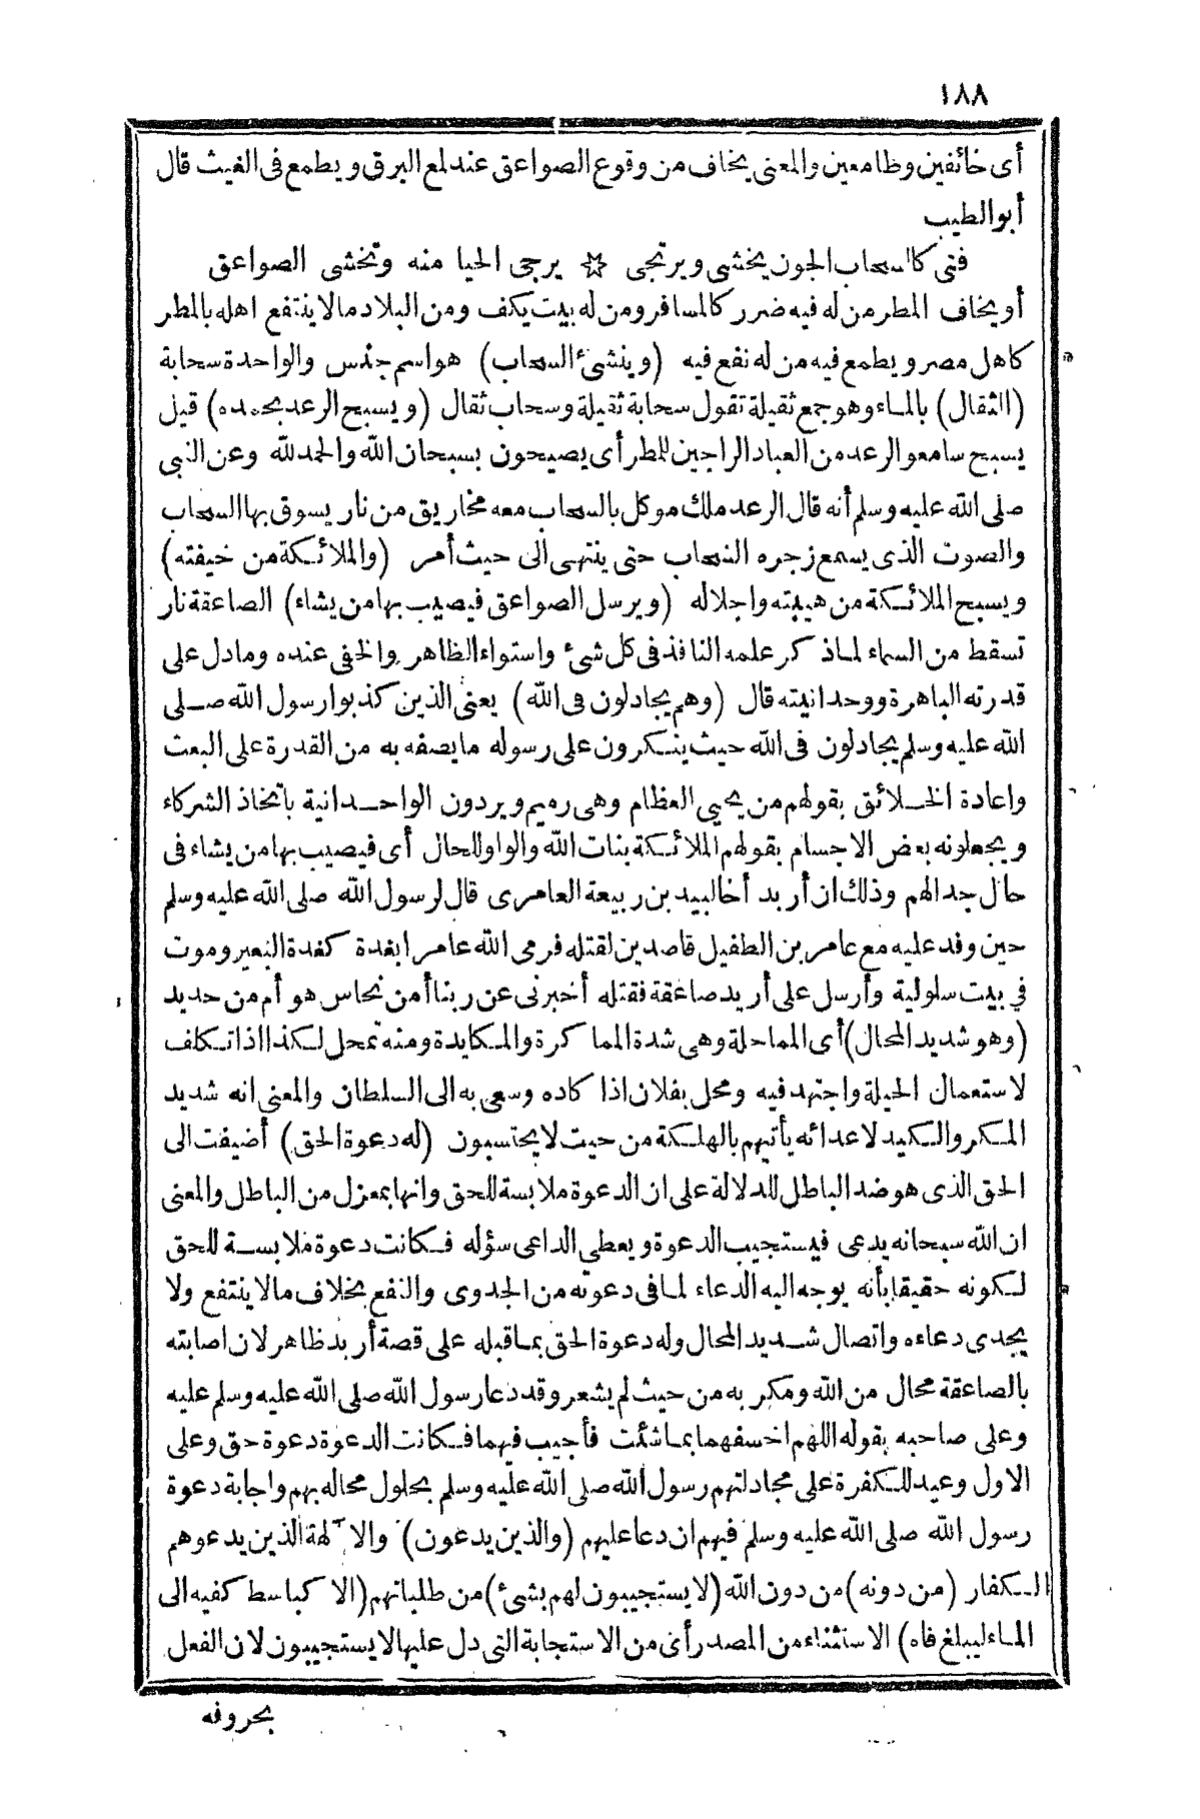 ١٨٨
أى خائفين وطامعين والمعنى يخاف من وقوع الصواعق عند لمع البرق ويطمع فى الغيث قال
أبو الطيب
فتى كالسحاب الجون يخشى ويرتجى ☆ يرجى الحيا منه وتخشى الصواعق
أو يخاف المطر من له فيه ضرر كالمسافر ومن له بيت يكف ومن البلاد مالا ينتفع اهله بالمطر
كاهل مصر ويطمع فيه من له نفع فيه (وينشئ السحاب) هو اسم جنس والواحدة سحابة
(الثقال) بالماء وهو جمع ثقيلة تقول سحابة ثقيلة وسحاب ثقال (ويسبح الرعد بحمده) قيل
يسبح سامعو الرعد من العباد الراجين للمطر أى يصيحون بسبحان الله والحمد لله وعن النبى
صلى الله عليه وسلم أنه قال الرعد ملك موكل بالسحاب معه مخاريق من نار يسوق بها السحاب
والصوت الذى يسمع زجره السحاب حتى ينتهى الى حيث أمر (والملائكة من خيفته)
ويسبح الملائكة من هيبته واجلاله (ويرسل الصواعق فيصيب بها من يشاء) الصاعقة نار
تسقط من السماء لما ذكر علمه النافذ فى كل شئ واستواء الظاهر والخفى عنده ومادل على
قدرته الباهرة ووحدانيته قال (وهم يجادلون فى الله) يعنى الذين كذبوا رسول الله صلى
الله عليه وسلم يجادلون فى الله حيث ينكرون على رسوله ما يصفه به من القدرة على البعث
واعادة الخلائق بقولهم من يحيى العظام وهى رميم ويردون الواحدانية باتخاذ الشركاء
ويجعلونه بعض الاجسام بقولهم الملائكة بنات الله والواو للحال أى فيصيب بها من يشاء فى
حال جدالهم وذلك ان أربد أخا لبيد بن ربيعة العامرى قال لرسول الله صلى الله عليه وسلم
حين وفد عليه مع عامر بن الطفيل قاصدين لقتله فرمى الله عامرا بغدة كغدة البعير وموت
فى بيت سلولية وأرسل على أربد صاعقة فقتله أخبرنى عن ربنا أمن نحاس هو أم من حديد
(وهو شديد المحال) أى المماحلة وهى شدة المماكرة والمكايدة ومنه تمحل لكذا اذا تكلف
لاستعمال الحيلة واجتهد فيه ومحل بفلان اذا كاده وسعى به الى السلطان والمعنى انه شديد
المكر والكيد لاعدائه يأتيهم بالهلكة من حيث لا يحتسبون (له دعوة الحق) أضيفت الى
الحق الذى هو ضد الباطل للدلالة على ان الدعوة ملابسة للحق وانها بمعزل من الباطل والمعنى
ان الله سبحانه يدعى فيستجيب الدعوة ويعطى الداعى سؤله فكانت دعوة ملابسة للحق
لكونه حقيقا بأنه يوجه اليه الدعاء لما فى دعوته من الجدوى والنفع بخلاف مالا ينتفع ولا
يجدى دعاءه واتصال شديد المحال وله دعوة الحق بما قبله على قصة أربد ظاهر لان اصابته
بالصاعقة محال من الله ومكر به من حيث لم يشعر وقد دعا رسول الله صلى الله عليه وسلم عليه
وعلى صاحبه بقوله اللهم اخسفهما بما شئت فأجيب فيهما فكانت الدعوة دعوة حق وعلى
الاول وعيد للكفرة على مجادلتهم رسول الله صلى الله عليه وسلم بحلول محاله بهم واجابة دعوة
رسول الله صلى الله عليه وسلم فيهم ان دعا عليهم (والذين يدعون) والآلهة الذين يدعوهم
الكفار (من دونه) من دون الله (لا يستجيبون لهم بشئ) من طلباتهم (الا كباسط كفيه الى
الماء ليبلغ فاه) الاستثناء من المصدر أى من الاستجابة التى دل عليها لا يستجيبون لان الفعل
بحروفه